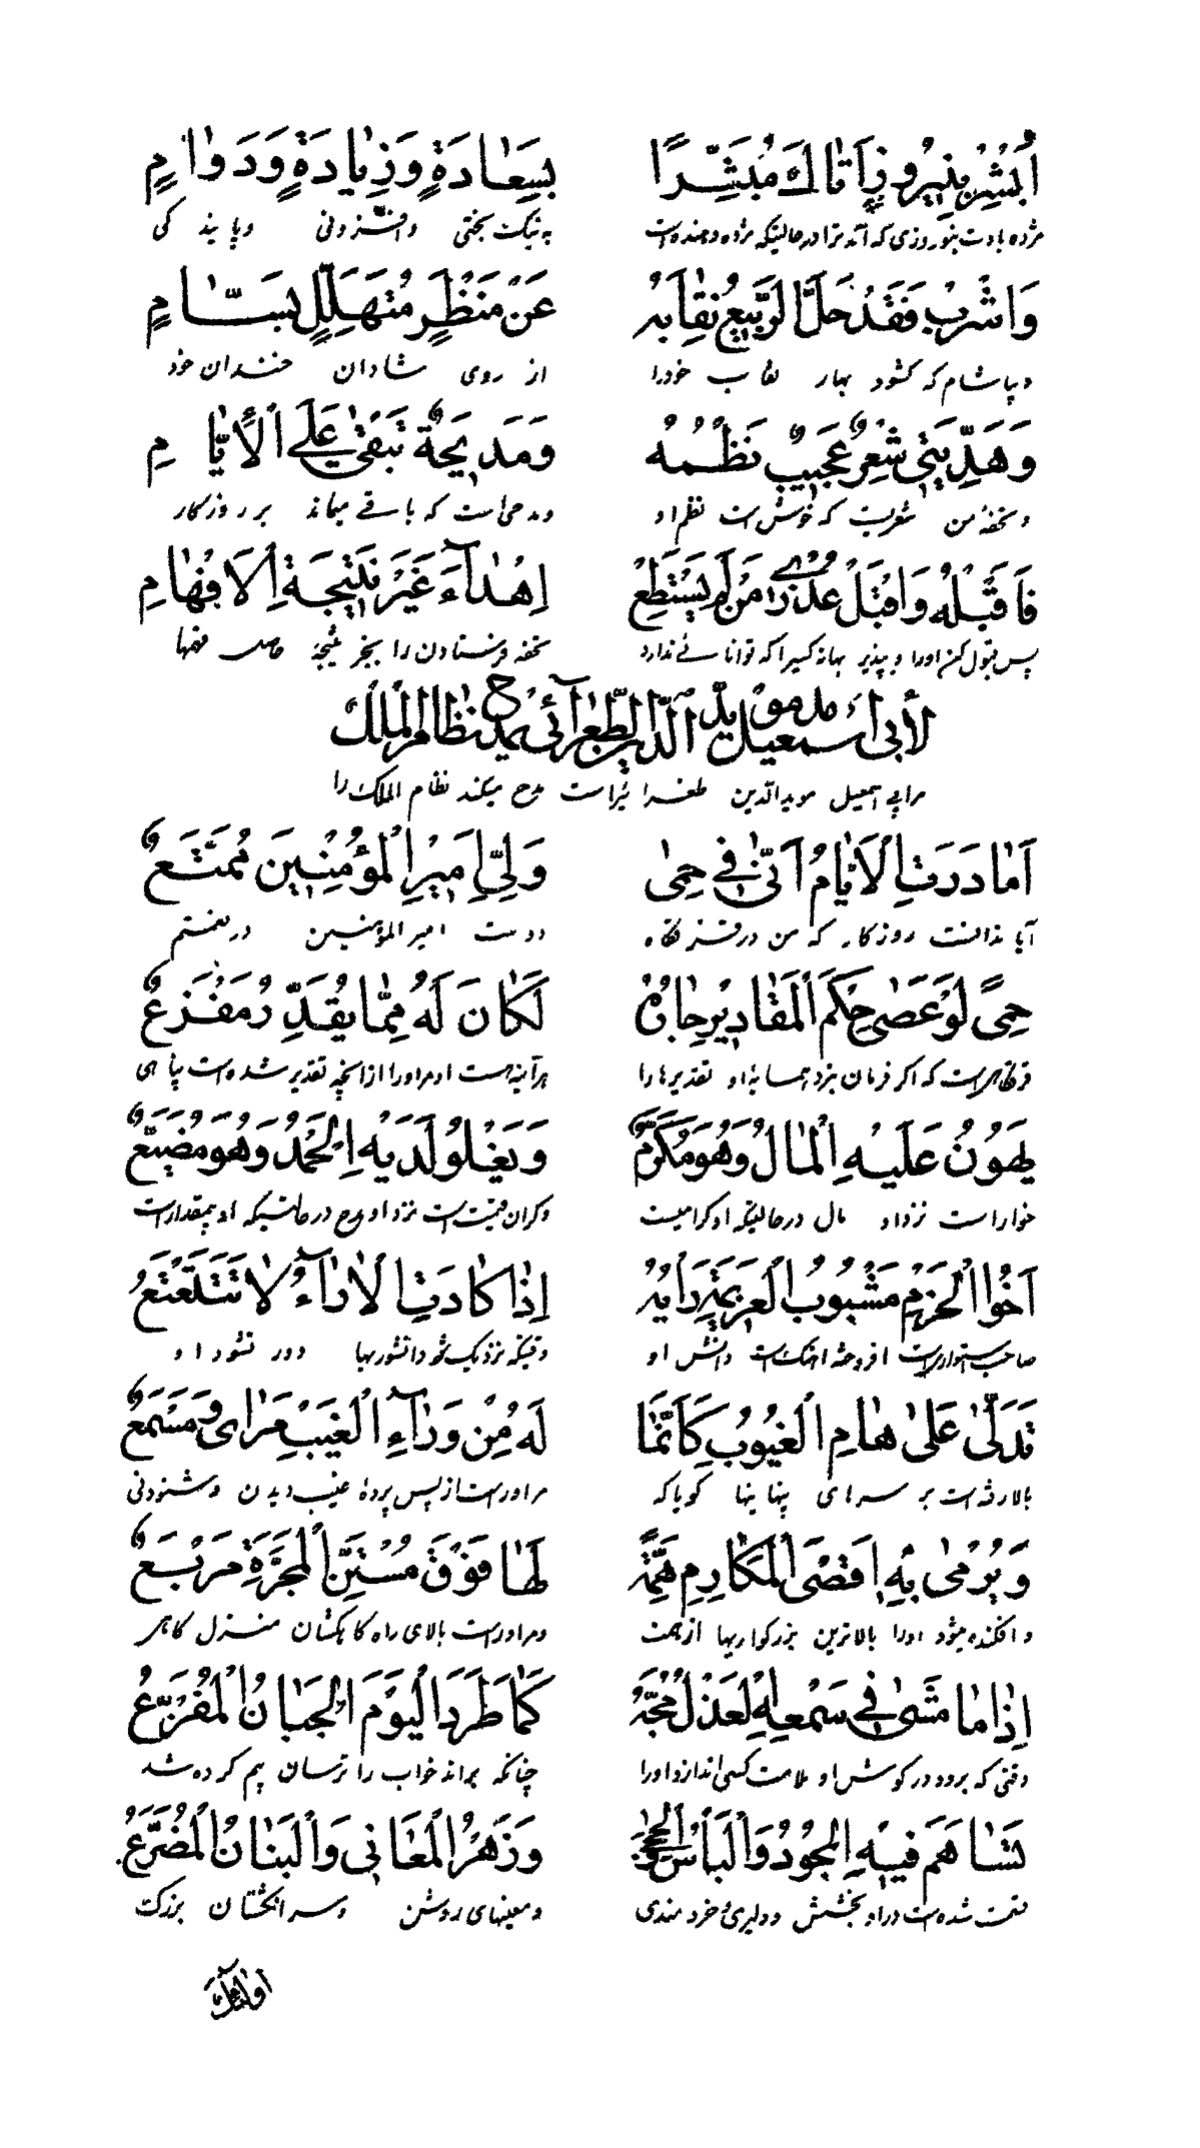 أَبْشِرْ بِنَيْرُوزٍ أَتَاكَ مُبَشِّرًا بِسَعَادَةٍ وَزِيَادَةٍ وَدَوَامٍ
مژده بادت بنوروزی که آمد ترا در حالیکه مژده دهنده است به نیکبختی و افزونی و پایندگی
وَاشْرَبْ فَقَدْ حَلَّ الرَّبِيعُ نِقَابَهُ عَنْ مَنْظَرٍ مُتَهَلِّلٍ بَسَّامٍ
و بیاشام که گشود بهار نقاب خود را از روی شادان خندان خود
وَهَدِيَّتِي شِعْرٌ عَجِيبٌ نَظْمُهُ وَمَدِيحَةٌ تَبْقَىٰ عَلَى الْأَيَّامِ
و تحفهٔ من شعریست که خوش است نظم او و مدحی است که باقی میماند بر روزگار
فَاقْبَلْهُ وَاقْبَلْ عُذْرَ مَنْ لَمْ يَسْتَطِعْ إِهْدَاءَ غَيْرِ نَتِيجَةِ الْأَفْهَامِ
پس قبول کن او را و بپذیر بهانه کسیرا که توانائی ندارد تحفه فرستادن را بجز نتیجهٔ حاصل فهمها
لأبى اسمعيل مؤيد الدّين الطّغرائى يمدح نظام الملك
مر ابی اسمعیل مویدالدین طغرائیراست مدح میکند نظام الملک را
أَمَا دَرَتِ الْأَيَّامُ أَنِّي فِي حِمَىٰ وَلِيِّ أَمِيرِ الْمُؤْمِنِينَ مُمَتَّعٌ
آیا ندانست روزگار که من در قرقگاه دوست امیر المؤمنین در نعمتم
حِمًى لَوْ عَصَىٰ حُكْمَ الْمَقَادِيرِ جَارُهُ لَكَانَ لَهُ مِمَّا يُقَدَّرُ مَفْزَعٌ
قرقگاهی است که اگر فرمان نبرد همسایهٔ او تقدیرها را هر آینه هست او مر او را از آنچه تقدیر شده است پناهی
يَهُونُ عَلَيْهِ الْمَالُ وَهُوَ مُكَرَّمٌ وَيَغْلُو لَدَيْهِ الْحَمْدُ وَهُوَ مُضَيَّعٌ
خوار است نزد او مال در حالیکه او گرامیست و گران قیمت است نزد او مدح در حالتیکه او بیمقدار است
أَخُو الْحَزْمِ مَشْبُوبُ الْعَزِيمَةِ رَأْيُهُ إِذَا كَادَتِ الْآرَاءُ لَا تَتَلَعْتَعُ
صاحب استواریست افروخته آهنگ است دانش او وقتیکه نزدیک شود دانشوریها دور نشود از او
تَدَلَّىٰ عَلَىٰ هَامِ الْغُيُوبِ كَأَنَّمَا لَهُ مِنْ وَرَاءِ الْغَيْبِ مَرْأًى وَمَسْمَعٌ
بالا رفته است بر سرهای پنهانیها گویا که مر او راست از پس پردهٔ غیب دیدن و شنودنی
وَيُرْمَىٰ بِهِ أَقْصَى الْمَكَارِمِ هِمَّةً لَهَا فَوْقَ مُسْتَنِّ الْمَجَرَّةِ مَرْبَعٌ
و افکنده میشود او را بالاترین بزرگواریها از همت و مر او راست بالای راه کاهکشان منزل گاهی
إِذَا مَا مَشَىٰ فِي سَمْعِهِ الْعَذْلُ مَجَّهُ كَمَا طَرَدَ النَّوْمَ الْجَبَانُ الْمُفَزَّعُ
وقتی که برود در گوش او ملامت کسی اندازد او را چنانکه براند خواب را ترسان بیم کرده شد
تَسَاهَمَ فِيهِ الْجُودُ وَالْبَأْسُ وَالْحِجَىٰ وَزُهْرُ الْمَعَانِي وَالْبَنَانُ الْمُضَرَّعُ
قسمت شده است در او بخشش و دلیری و خردمندی و معنیهای روشن و سر انگشتان بزرگ